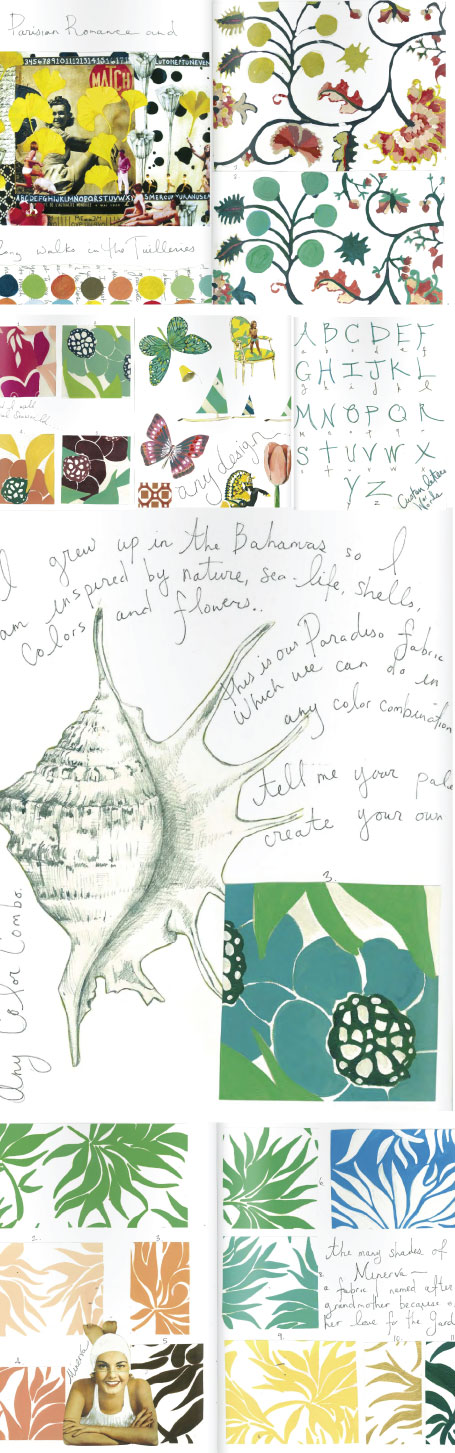 Parisian Romance and
3 4 5 6 7 8 9 10 11 12 13 14 15 16 17
LUTONEPTUNEVEN
MATCH
ABCDEFGHIJKLMNOPQRSTUVWXY
SMERCURYURANUSEA
Long walks in the Tuilleries
any design
A B C D E F
a b c d e f
G H I J K L
g h i j k l
M N O P Q R
m n o p q r
S T U V W X
s t u v w x
Y Z
y z
Custom Letters
for
I grew up in the Bahamas so I
am inspired by nature, sea-life, shells,
colors and flowers..
this is our Paradiso fabric
which we can do in
any color combination
tell me your
create your own
Any Color Combo.
3.
2.
3.
4.
5
6.
the many shades of
Minerva —
a fabric named after
grandmother because
her love for the
9.
10.
11
Minerva